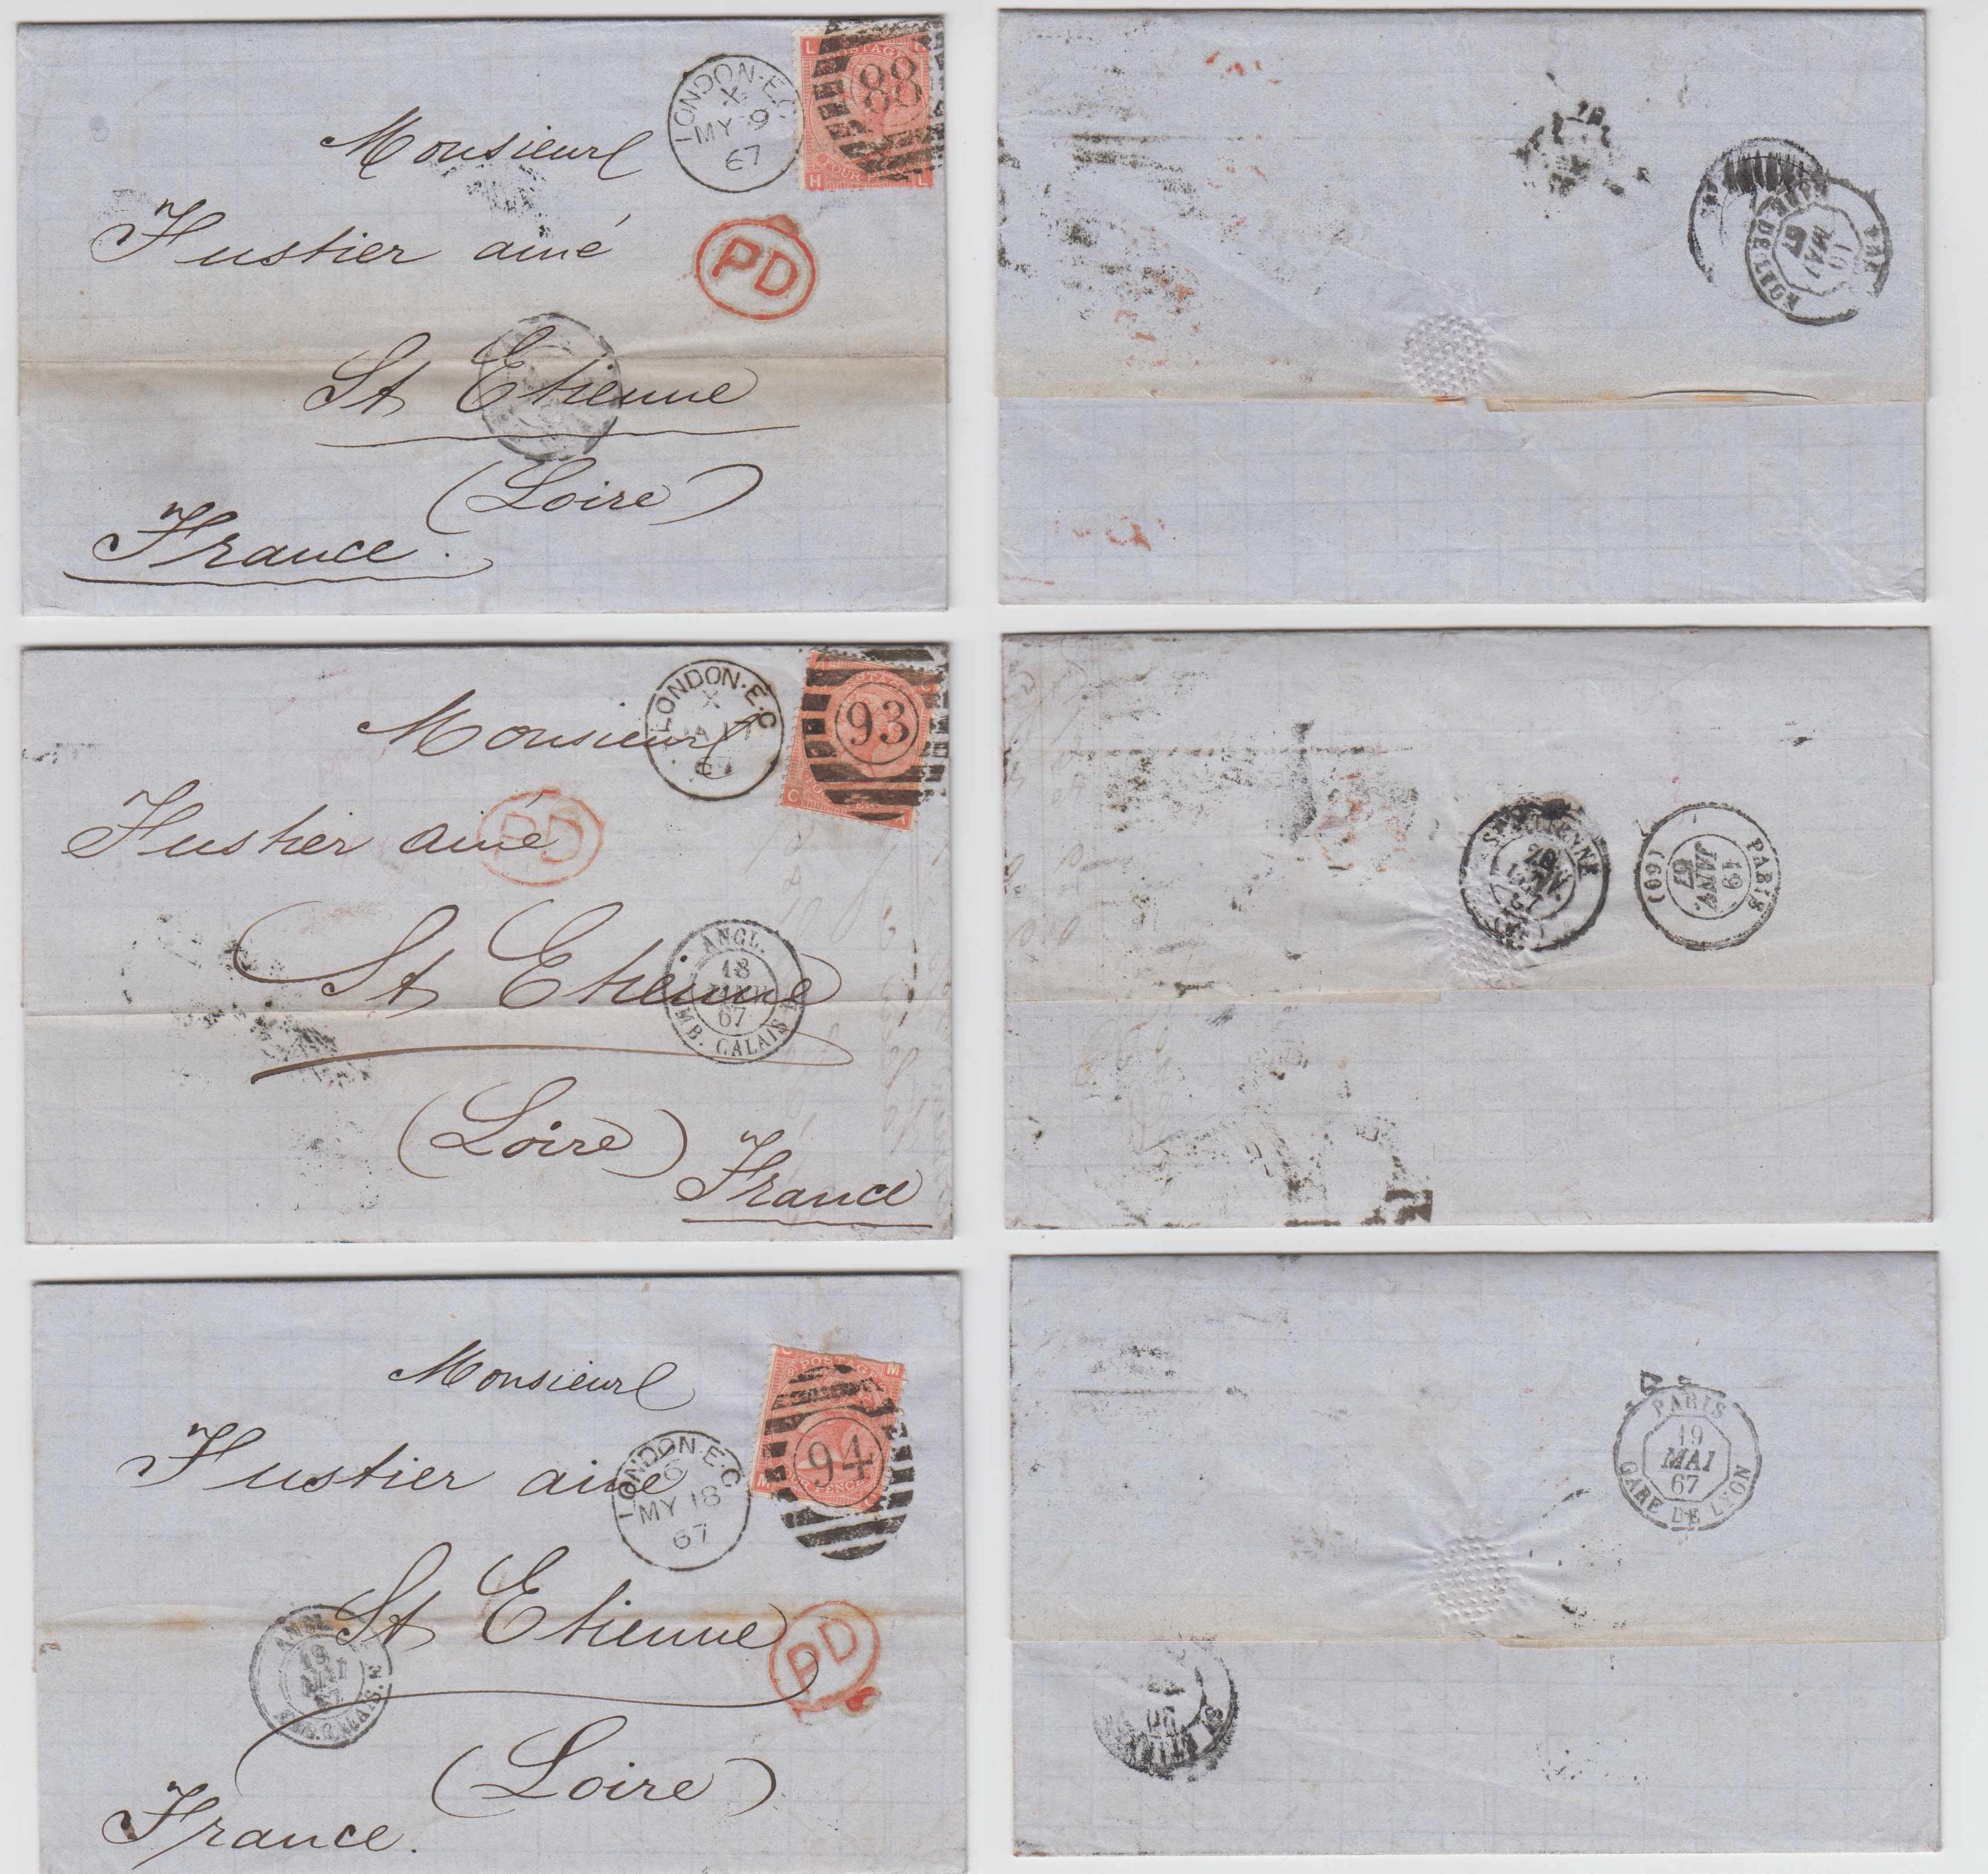 LONDON·E.C
X
MY 9
67
88
L
H
L
Monsieur
Fustier ainé
PD
St Etienne
(Loire)
France.
10
MAI
67
LONDON·E.C
X
JA 17
67
93
C
Monsieur
Fustier ainé
PD
St Etienne
ANGL.
18
JANV.
67
AMB. CALAIS
(Loire)
France
ST ETIENNE
20
JANV.
67
PARIS
19
JANV.
67
(60)
POSTAGE
M
94
M
PENCE
Monsieur
Fustier ainé
LONDON·E.C
6
MY 18
67
St Etienne
ANGL
19
MAI
67
CALAIS
PD
(Loire)
France.
PARIS
19
MAI
67
GARE DE LYON
20